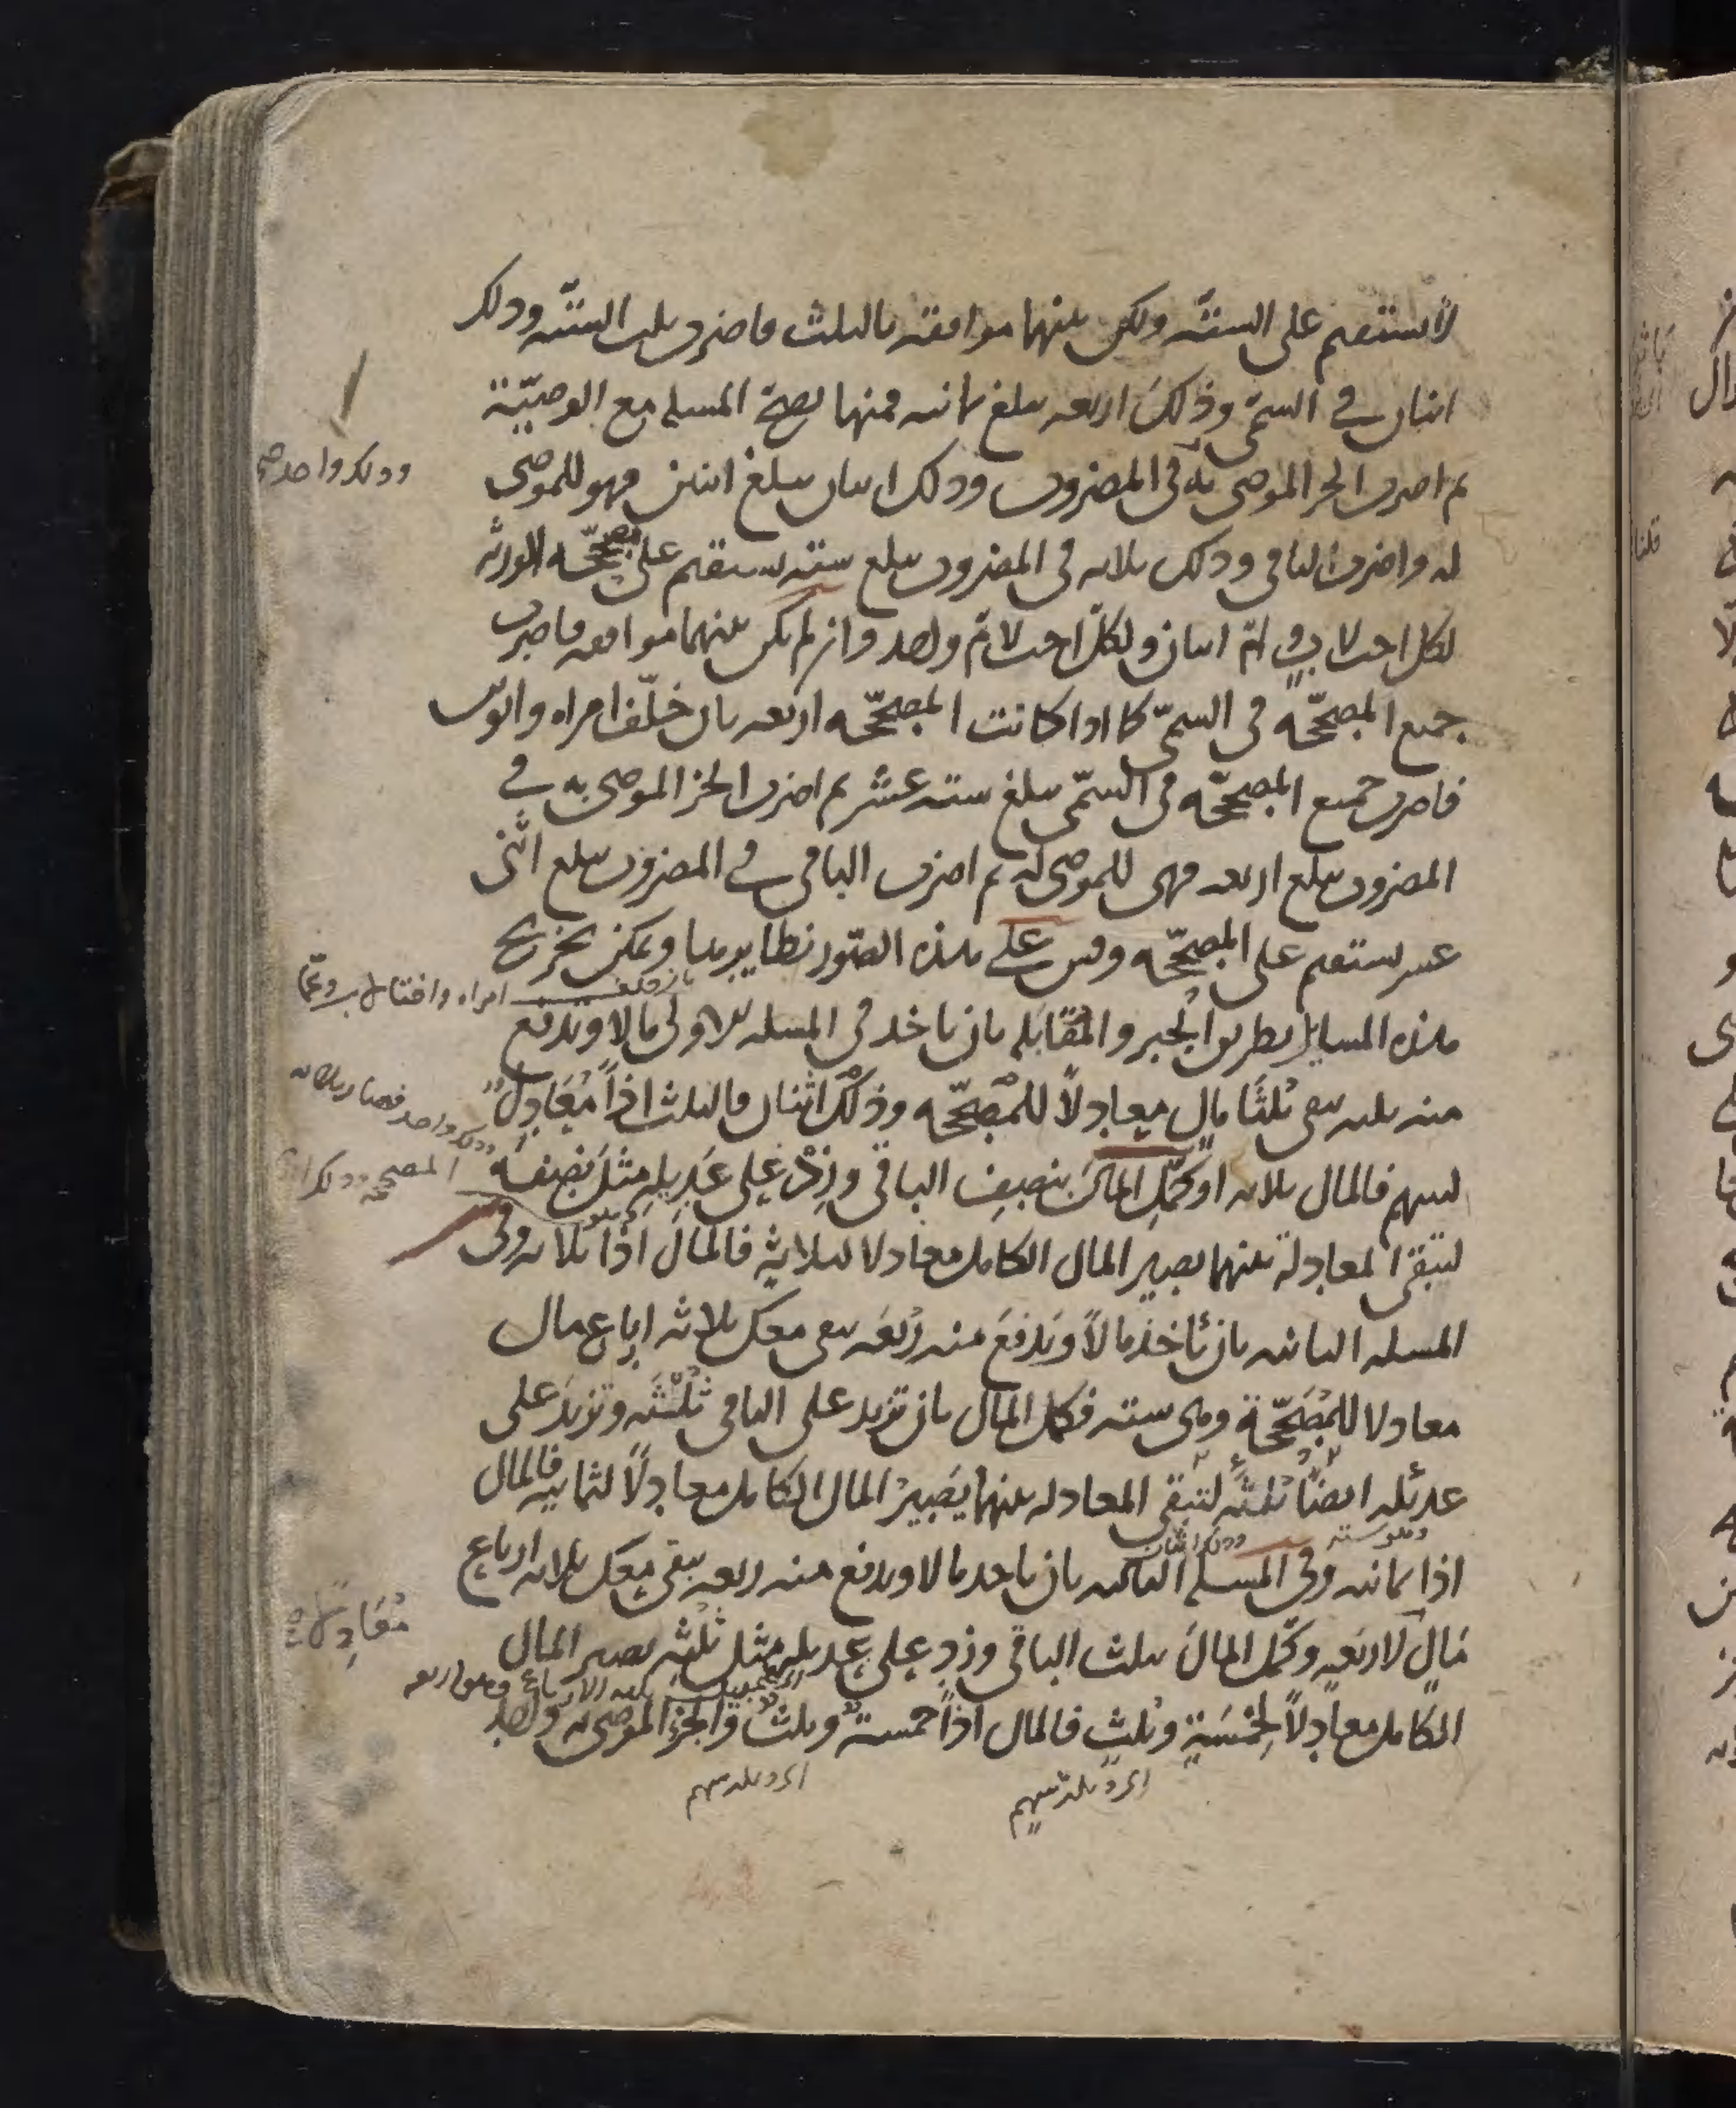 لا تستقيم على الستة ولكن بينهما موافقة بالثلث فاضرب ثلث الستة وذلك
اثنان في المسمى وذلك اربعة يبلغ ثمانية فمنها تصح المسئلة مع الوصية
ثم اضرب الجزء الموصى به في المضروب وذلك اثنان يبلغ اثنين فهو للموصى
وذلك واحد صح
له واضرب الباقي وذلك ثلاثة في المضروب يبلغ ستة تستقيم على مصححة الورثة
لكل اخت لاب وام اثنان ولكل اخت لام واحد وان لم يكن بينهما موافقة فاضرب
جميع المصححة في المسمى كما اذا كانت المصححة اربعة بان خلف امراه وابوين
فاضرب جميع المصححة في المسمى يبلغ ستة عشر ثم اضرب الجزء الموصى به في
المضروب يبلغ اربعة فهي للموصى له ثم اضرب الباقي في المضروب يبلغ اثنى
عشر تستقيم على المصححة وقس على هذه الصور نظايرها ويمكن تخريج
هذه المسايل بطريق الجبر والمقابلة بان تاخذ في المسئلة الاولى مالا وتدفع
منه ثلثه يبقى ثلثا مال معادلا للمصححة وذلك اثنان فالثلث اذا معادل
لسهم فالمال ثلاثة او كمل المال بنصف الباقي وزد على عديله مثل نصفه
لتبقى المعادلة بينهما يصير المال الكامل معادلا لثلاثة فالمال اذا ثلاثة وفي
المسئلة الثانية بان تاخذ مالا وتدفع منه ربعه يبقى معك ثلاثة ارباع مال
معادلا للمصححة وهي ستة فكمل المال بان تزيد على الباقي ثلثه وتزيد على
عديله ايضا ثلثه لتبقى المعادلة بينهما يصير المال الكامل معادلا لثمانية فالمال
وهو ستة وذلك اثنان
اذا ثمانية وفي المسئلة الثالثة بان تاخذ مالا وتدفع منه ربعه يبقى معك ثلاثة ارباع
معادلا صح
مال لاربعة وكمل المال بثلث الباقي وزد على عديله مثل ثلثه يصير المال
الكامل معادلا لخمسة وثلث فالمال اذا خمسة وثلث والجزء الموصى به واحد
اي وثلث سهم
اي وثلث سهم